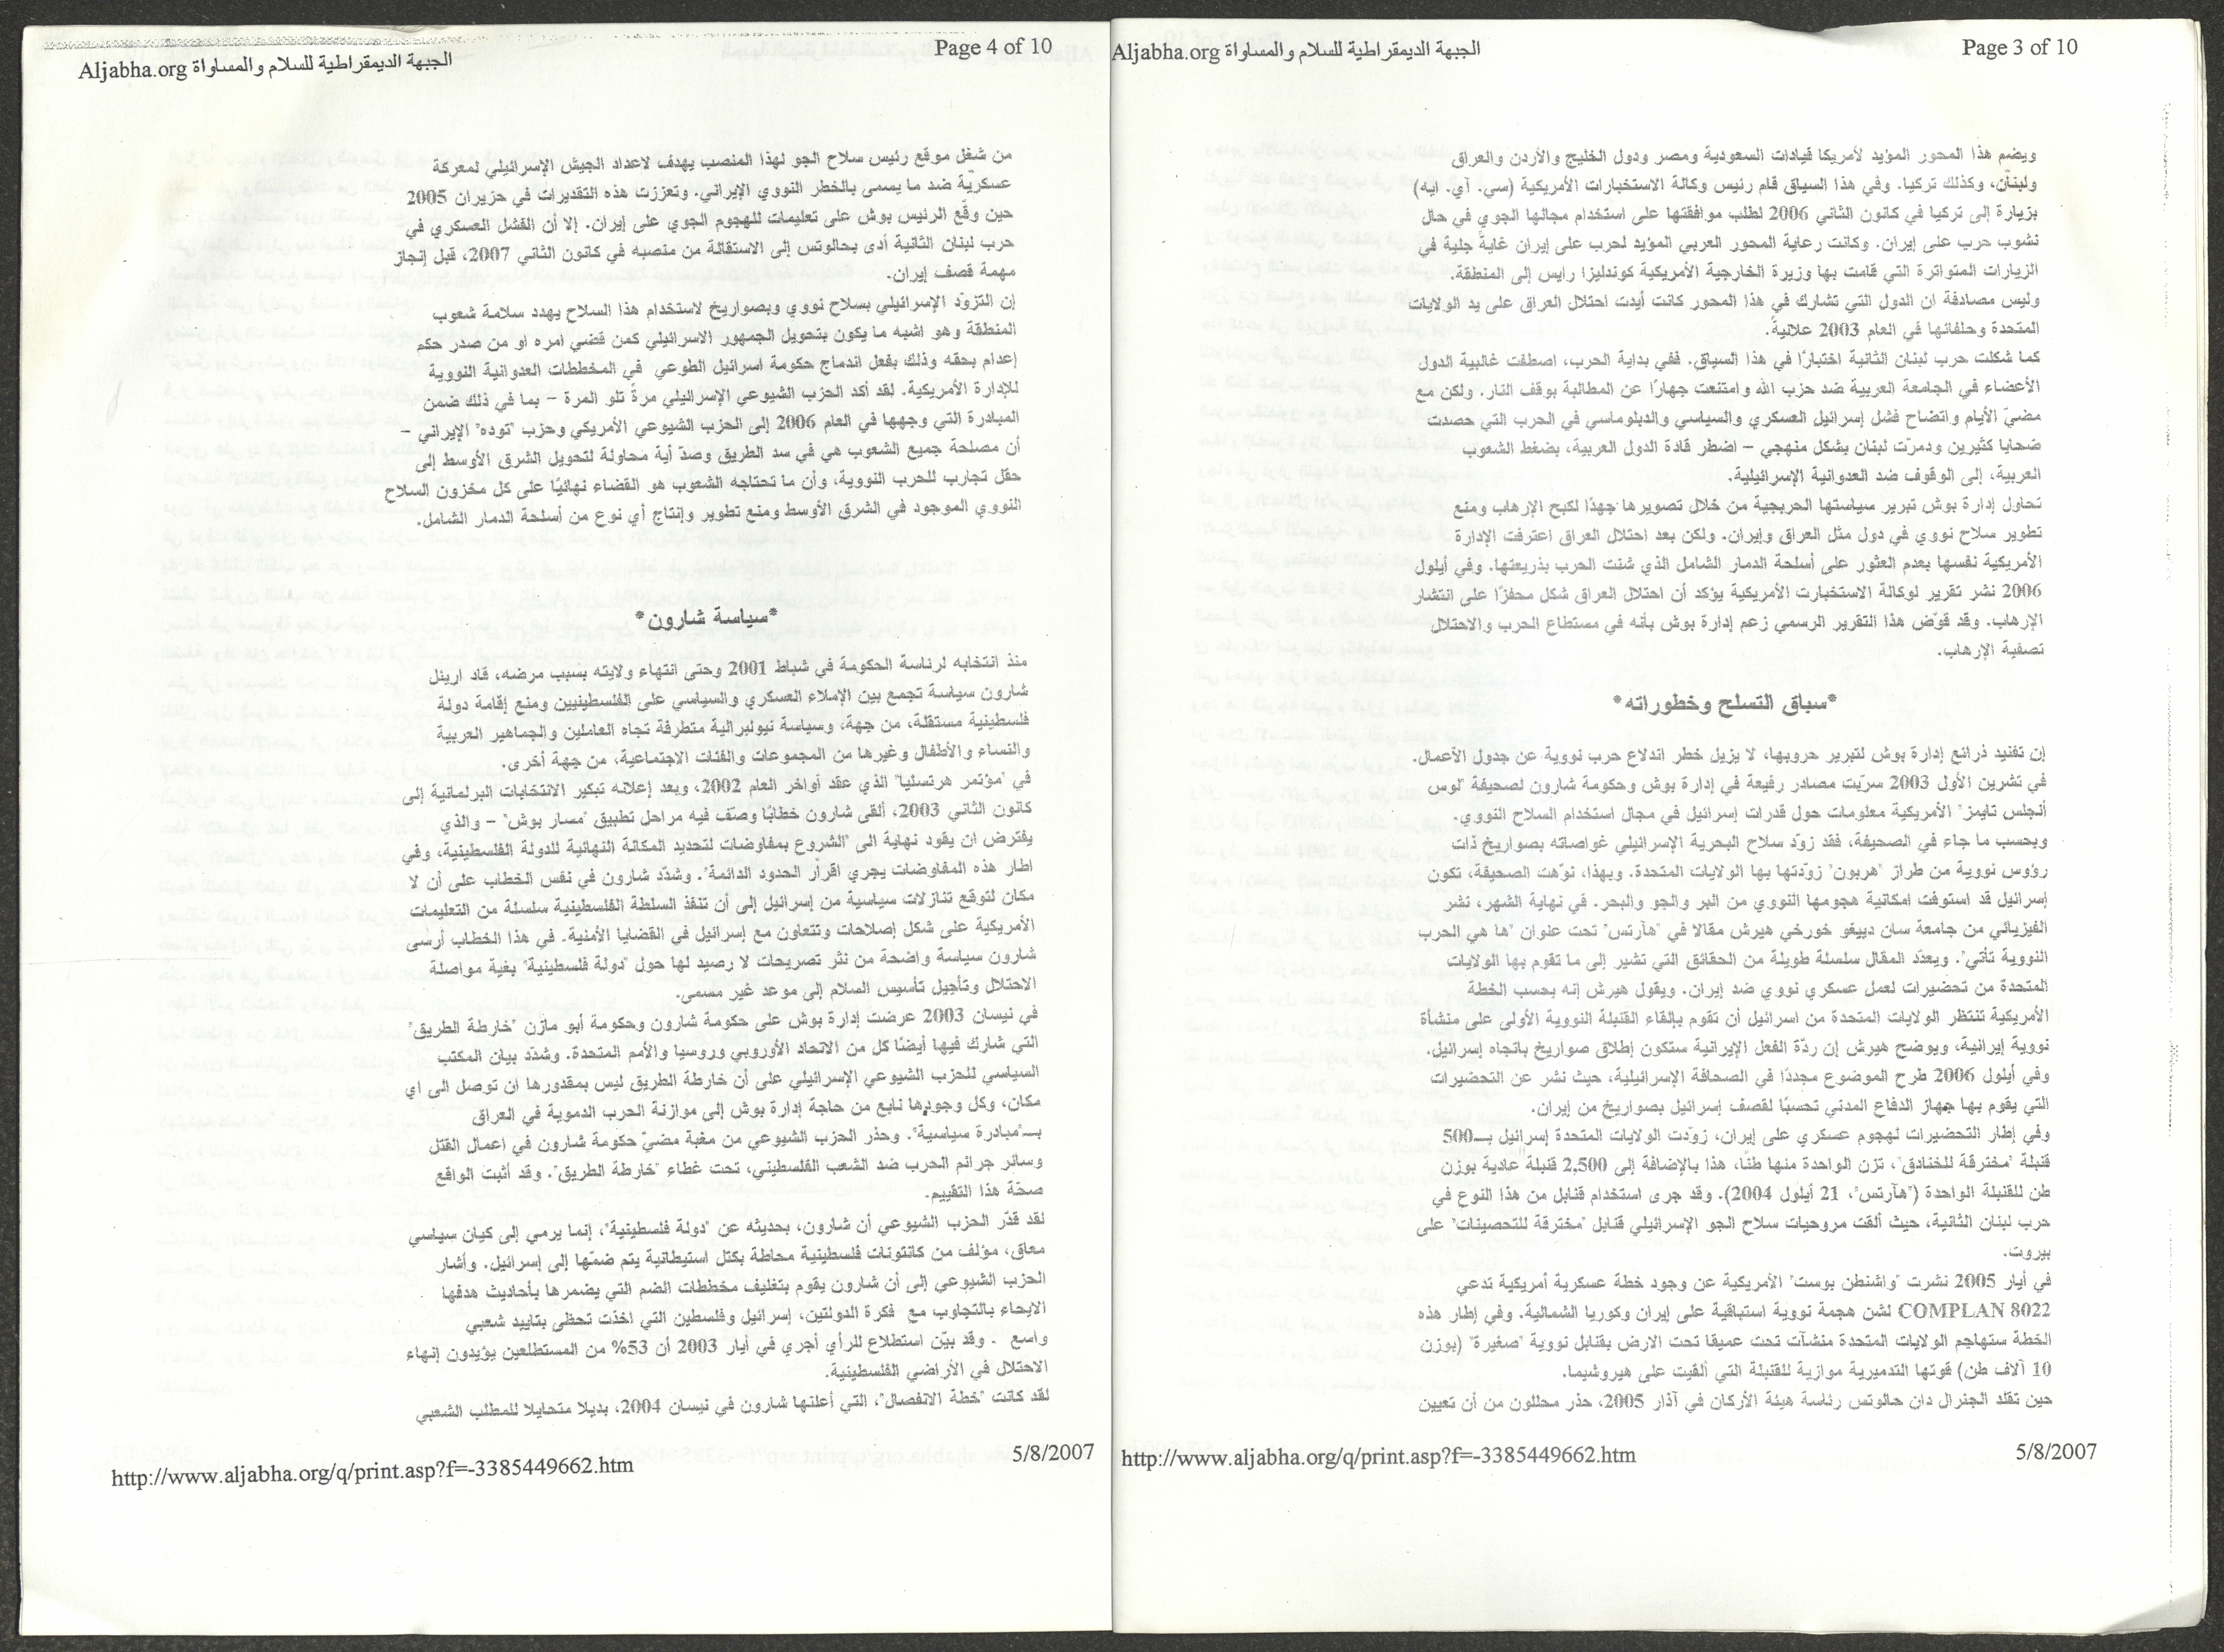 Aljabha.org الجبهة الديمقراطية للسلام والمساواة
Page 3 of 10
ويضم هذا المحور المؤيد لأمريكا قيادات السعودية ومصر ودول الخليج والأردن والعراق
ولبنان، وكذلك تركيا. وفي هذا السياق قام رئيس وكالة الاستخبارات الأمريكية (سي. آي. ايه)
بزيارة إلى تركيا في كانون الثاني 2006 لطلب موافقتها على استخدام مجالها الجوي في حال
نشوب حرب على إيران. وكانت رعاية المحور العربي المؤيد لحرب على إيران غايةً جلية في
الزيارات المتواترة التي قامت بها وزيرة الخارجية الأمريكية كوندليزا رايس إلى المنطقة.
وليس مصادفة ان الدول التي تشارك في هذا المحور كانت أيدت احتلال العراق على يد الولايات
المتحدة وحلفائها في العام 2003 علانيةً.
كما شكلت حرب لبنان الثانية اختبارًا في هذا السياق. ففي بداية الحرب، اصطفت غالبية الدول
الأعضاء في الجامعة العربية ضد حزب الله وامتنعت جهارًا عن المطالبة بوقف النار. ولكن مع
مضيّ الأيام واتضاح فشل إسرائيل العسكري والسياسي والدبلوماسي في الحرب التي حصدت
ضحايا كثيرين ودمرّت لبنان بشكل منهجي – اضطر قادة الدول العربية، بضغط الشعوب
العربية، إلى الوقوف ضد العدوانية الإسرائيلية.
تحاول إدارة بوش تبرير سياستها الحربجية من خلال تصويرها جهدًا لكبح الإرهاب ومنع
تطوير سلاح نووي في دول مثل العراق وإيران. ولكن بعد احتلال العراق اعترفت الإدارة
الأمريكية نفسها بعدم العثور على أسلحة الدمار الشامل الذي شنت الحرب بذريعتها. وفي أيلول
2006 نشر تقرير لوكالة الاستخبارت الأمريكية يؤكد أن احتلال العراق شكل محفزًا على انتشار
الإرهاب. وقد قوّض هذا التقرير الرسمي زعم إدارة بوش بأنه في مستطاع الحرب والاحتلال
تصفية الإرهاب.
*سباق التسلح وخطوراته*
إن تفنيد ذرائع إدارة بوش لتبرير حروبها، لا يزيل خطر اندلاع حرب نووية عن جدول الأعمال.
في تشرين الأول 2003 سرّبت مصادر رفيعة في إدارة بوش وحكومة شارون لصحيفة "لوس
أنجلس تايمز" الأمريكية معلومات حول قدرات إسرائيل في مجال استخدام السلاح النووي.
وبحسب ما جاء في الصحيفة، فقد زوّد سلاح البحرية الإسرائيلي غواصاته بصواريخ ذات
رؤوس نووية من طراز "هربون" زوّدتها بها الولايات المتحدة. وبهذا، نوّهت الصحيفة، تكون
إسرائيل قد استوفت امكانية هجومها النووي من البر والجو والبحر. في نهاية الشهر، نشر
الفيزيائي من جامعة سان دييغو خورخي هيرش مقالا في "هآرتس" تحت عنوان "ها هي الحرب
النووية تأتي". ويعدّد المقال سلسلة طويلة من الحقائق التي تشير إلى ما تقوم بها الولايات
المتحدة من تحضيرات لعمل عسكري نووي ضد إيران. ويقول هيرش إنه بحسب الخطة
الأمريكية تنتظر الولايات المتحدة من اسرائيل أن تقوم بإلقاء القنبلة النووية الأولى على منشأة
نووية إيرانية، ويوضح هيرش إن ردّة الفعل الإيرانية ستكون إطلاق صواريخ باتجاه إسرائيل.
وفي أيلول 2006 طرح الموضوع مجددًا في الصحافة الإسرائيلية، حيث نشر عن التحضيرات
التي يقوم بها جهاز الدفاع المدني تحسبًا لقصف إسرائيل بصواريخ من إيران.
وفي إطار التحضيرات لهجوم عسكري على إيران، زوّدت الولايات المتحدة إسرائيل بـ500
قنبلة "مخترقة للخنادق"، تزن الواحدة منها طنًا، هذا بالإضافة إلى 2,500 قنبلة عادية بوزن
طن للقنبلة الواحدة ("هآرتس"، 21 أيلول 2004). وقد جرى استخدام قنابل من هذا النوع في
حرب لبنان الثانية، حيث ألقت مروحيات سلاح الجو الإسرائيلي قنابل "مخترقة للتحصينات" على
بيروت.
في أيار 2005 نشرت "واشنطن بوست" الأمريكية عن وجود خطة عسكرية أمريكية تدعي
COMPLAN 8022 لشن هجمة نووية استباقية على إيران وكوريا الشمالية. وفي إطار هذه
الخطة ستهاجم الولايات المتحدة منشآت تحت عميقا تحت الارض بقنابل نووية "صغيرة" (بوزن
10 آلاف طن) قوتها التدميرية موازية للقنبلة التي ألقيت على هيروشيما.
حين تقلد الجنرال دان حالوتس رئاسة هيئة الأركان في آذار 2005، حذر محللون من أن تعيين
http://www.aljabha.org/q/print.asp?f=-3385449662.htm
5/8/2007
Aljabha.org الجبهة الديمقراطية للسلام والمساواة
Page 4 of 10
من شغل موقع رئيس سلاح الجو لهذا المنصب يهدف لاعداد الجيش الإسرائيلي لمعركة
عسكريّة ضد ما يسمى بالخطر النووي الإيراني. وتعززت هذه التقديرات في حزيران 2005
حين وقّع الرئيس بوش على تعليمات للهجوم الجوي على إيران. إلا أن الفشل العسكري في
حرب لبنان الثانية أدى بحالوتس إلى الاستقالة من منصبه في كانون الثاني 2007، قبل إنجاز
مهمة قصف إيران.
إن التزوّد الإسرائيلي بسلاح نووي وبصواريخ لاستخدام هذا السلاح يهدد سلامة شعوب
المنطقة وهو اشبه ما يكون بتحويل الجمهور الاسرائيلي كمن قضي امره او من صدر حكم
إعدام بحقه وذلك بفعل اندماج حكومة اسرائيل الطوعي في المخططات العدوانية النووية
للإدارة الأمريكية. لقد أكد الحزب الشيوعي الإسرائيلي مرةً تلو المرة – بما في ذلك ضمن
المبادرة التي وجهها في العام 2006 إلى الحزب الشيوعي الأمريكي وحزب "توده" الإيراني –
أن مصلحة جميع الشعوب هي في سد الطريق وصدّ أية محاولة لتحويل الشرق الأوسط إلى
حقل تجارب للحرب النووية، وأن ما تحتاجه الشعوب هو القضاء نهائيًا على كل مخزون السلاح
النووي الموجود في الشرق الأوسط ومنع تطوير وإنتاج أي نوع من أسلحة الدمار الشامل.
*سياسة شارون*
منذ انتخابه لرئاسة الحكومة في شباط 2001 وحتى انتهاء ولايته بسبب مرضه، قاد أريئل
شارون سياسة تجمع بين الإملاء العسكري والسياسي على الفلسطينيين ومنع إقامة دولة
فلسطينية مستقلة، من جهة، وسياسة نيولبرالية متطرفة تجاه العاملين والجماهير العربية
والنساء والأطفال وغيرها من المجموعات والفئات الاجتماعية، من جهة أخرى.
في "مؤتمر هرتسليا" الذي عقد أواخر العام 2002، وبعد إعلانه تبكير الانتخابات البرلمانية إلى
كانون الثاني 2003، ألقى شارون خطابًا وصف فيه مراحل تطبيق "مسار بوش" – والذي
يفترض ان يقود نهاية الى "الشروع بمفاوضات لتحديد المكانة النهائية للدولة الفلسطينية، وفي
اطار هذه المفاوضات يجري اقرأر الحدود الدائمة". وشدّد شارون في نفس الخطاب على أن لا
مكان لتوقع تنازلات سياسية من إسرائيل إلى أن تنفذ السلطة الفلسطينية سلسلة من التعليمات
الأمريكية على شكل إصلاحات وتتعاون مع إسرائيل في القضايا الأمنية. في هذا الخطاب أرسى
شارون سياسة واضحة من نثر تصريحات لا رصيد لها حول "دولة فلسطينية" بغية مواصلة
الاحتلال وتأجيل تأسيس السلام إلى موعد غير مسمى.
في نيسان 2003 عرضت إدارة بوش على حكومة شارون وحكومة أبو مازن "خارطة الطريق"
التي شارك فيها أيضًا كل من الاتحاد الأوروبي وروسيا والأمم المتحدة. وشدّد بيان المكتب
السياسي للحزب الشيوعي الإسرائيلي على أن خارطة الطريق ليس بمقدورها ان توصل الى أي
مكان، وكل وجودها نابع من حاجة إدارة بوش إلى موازنة الحرب الدموية في العراق
بـ"مبادرة سياسية". وحذر الحزب الشيوعي من مغبة مضيّ حكومة شارون في اعمال القتل
وسائر جرائم الحرب ضد الشعب الفلسطيني، تحت غطاء "خارطة الطريق". وقد أثبت الواقع
صحّة هذا التقييم.
لقد قدّر الحزب الشيوعي أن شارون، بحديثه عن "دولة فلسطينية"، إنما يرمي إلى كيان سياسي
معاق، مؤلف من كانتونات فلسطينية محاطة بكتل استيطانية يتم ضمّها إلى إسرائيل. وأشار
الحزب الشيوعي إلى أن شارون يقوم بتغليف مخططات الضم التي يضمرها بأحاديث هدفها
الايحاء بالتجاوب مع فكرة الدولتين، إسرائيل وفلسطين التي اخذت تحظى بتاييد شعبي
واسع . وقد بيّن استطلاع للرأي أجري في أيار 2003 أن 53% من المستطلعين يؤيدون إنهاء
الاحتلال في الأراضي الفلسطينية.
لقد كانت "خطة الانفصال"، التي أعلنها شارون في نيسان 2004، بديلا متحايلا للمطلب الشعبي
http://www.aljabha.org/q/print.asp?f=-3385449662.htm
5/8/2007